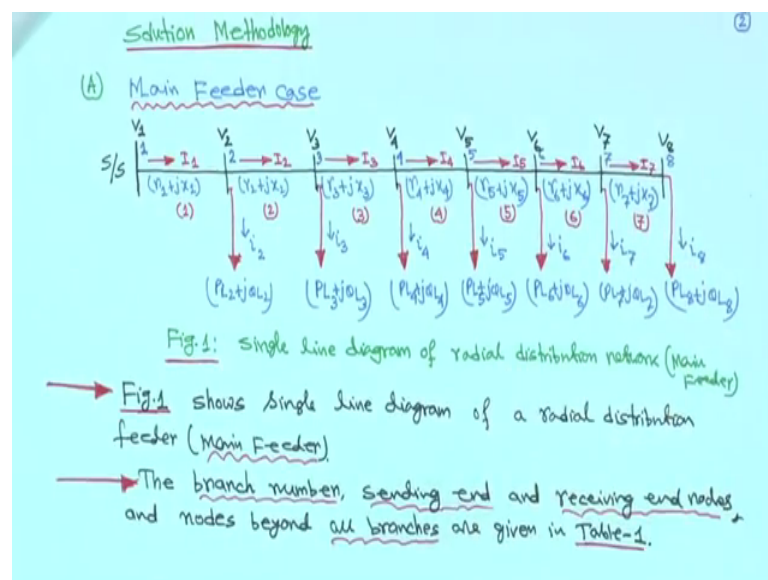 ②
Solution Methodology
(A) Main Feeder case
V1 V2 V3 V4 V5 V6 V7 V8
S/S 1 I1 2 I2 3 I3 4 I4 5 I5 6 I6 7 I7 8
(r1+jx1) (r2+jx2) (r3+jx3) (r4+jx4) (r5+jx5) (r6+jx6) (r7+jx7)
(1) (2) (3) (4) (5) (6) (7)
i2 i3 i4 i5 i6 i7 i8
(PL2+jQL2) (PL3+jQL3) (PL4+jQL4) (PL5+jQL5) (PL6+jQL6) (PL7+jQL7) (PL8+jQL8)
Fig.1: Single line diagram of radial distribution network (Main
Feeder)
Fig.1 shows single line diagram of a radial distribution
feeder (Main Feeder).
The branch number, sending end and receiving end nodes,
and nodes beyond all branches are given in Table-1.